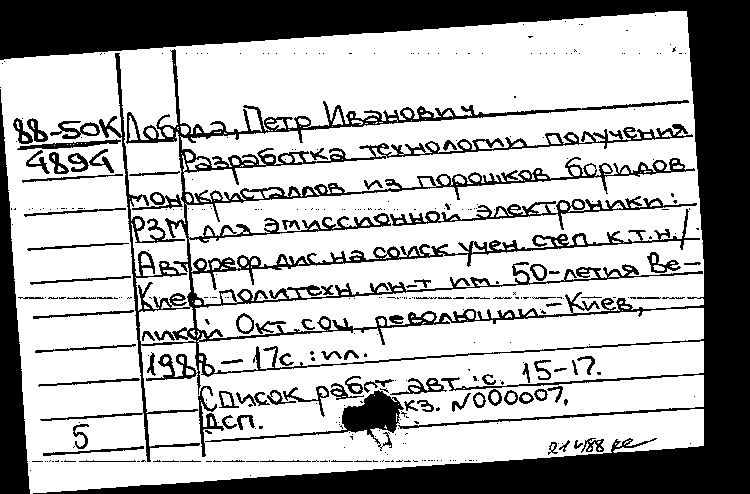 88-50К Лобода, Петр Иванович.
4894 Разработка технологии получения
монокристаллов из порошков боридов
РЗМ для эмиссионной электроники:
Автореф. дис. на соиск. учен. степ. к.т.н./
Киев. политехн. ин-т им. 50-летия Ве-
ликой Окт. соц. революции.-Киев,
1988.- 17с.:ил.
Список работ авт.:с. 15-17.
ДСП. кз. N000007.
5